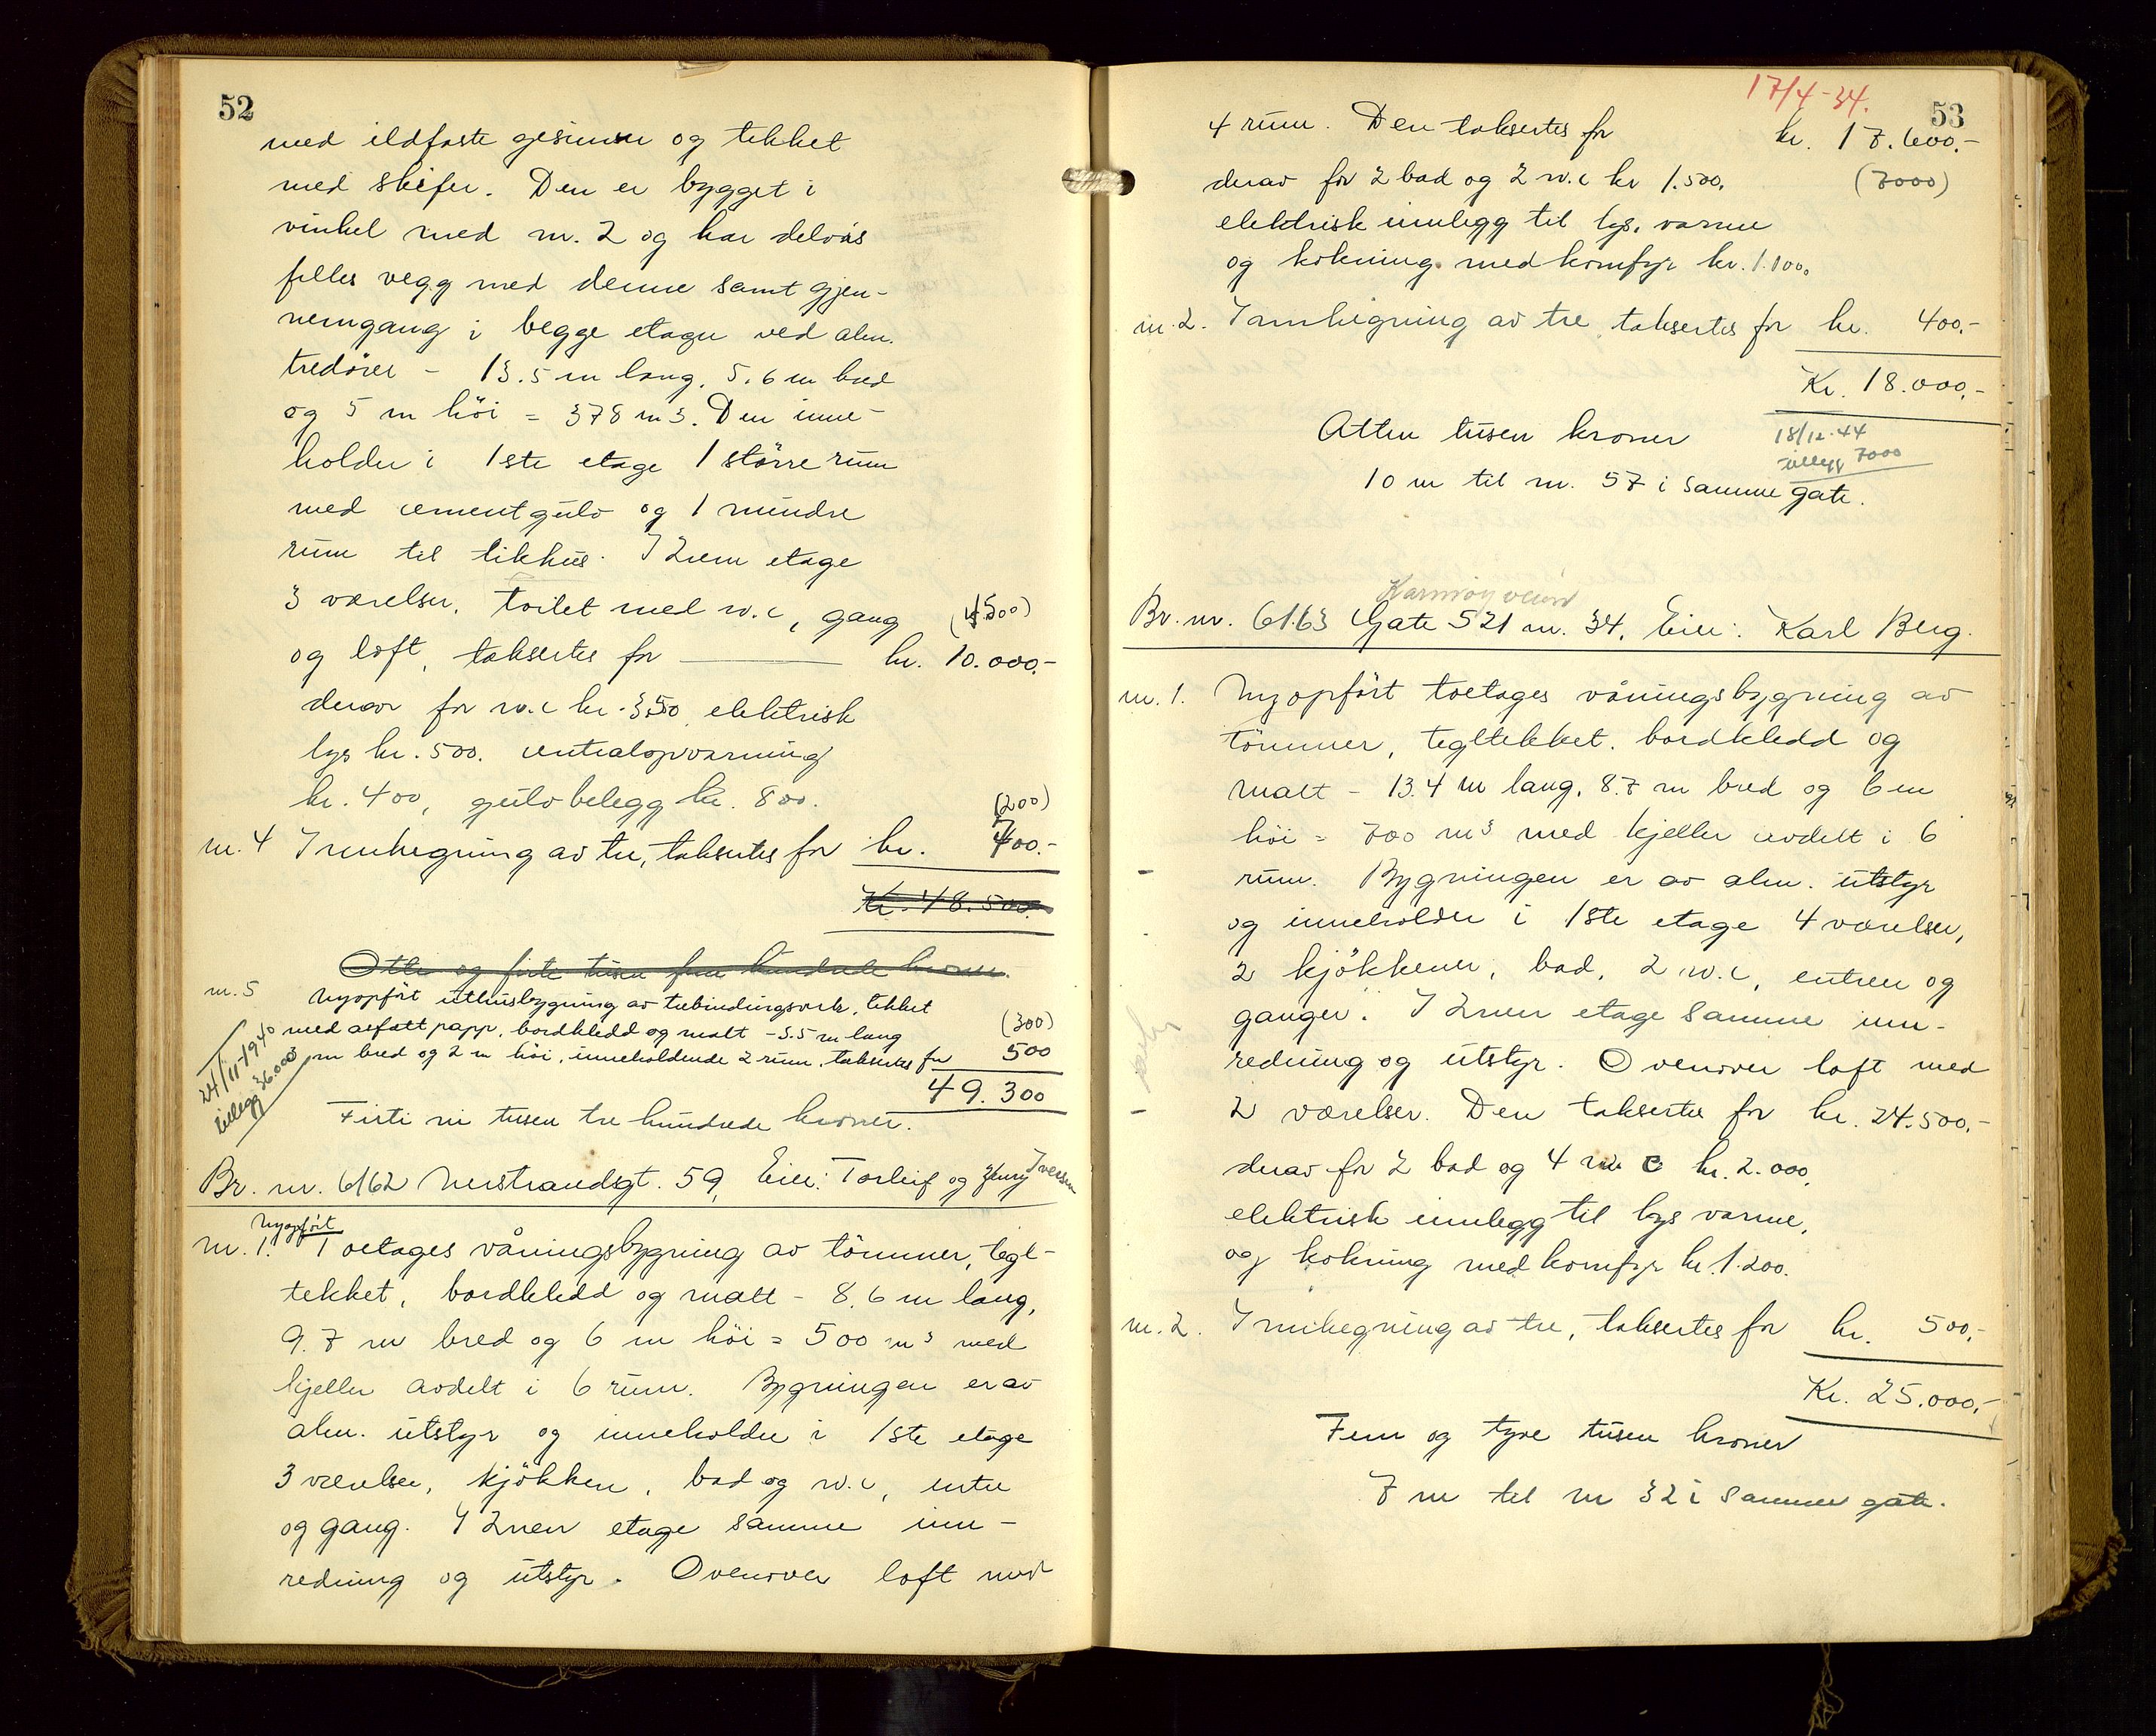 52
med ildfaste gesimser og tekket
med skifer. Den er bygget i
vinkel med nr. 2 og har delvis
felles vegg med denne samt gjen-
nemgang i begge etager ved alm.
tredører - 13.5 m lang, 5.6 m bred
og 5 m höi = 378 m3. Den inne-
holder i 1ste etage 1 større rum
med cementgulv og 1 mindre
rum til likhus. I 2nen etage
3 værelser, toilet med w.c, gang (4500)
og loft, taksertes for kr. 10.000.-
derav for w.c kr. 350, elektrisk
lys kr. 500. centralopvarming
kr. 400, gulvbelegg kr. 800.
(200)
nr. 4 Innhegning av tre, taksertes for kr. 400.-
Kr. 48.500.
Otte og firte tusen fem hundrede kroner.
nr. 5 Nyopfört uthusbygning av trebindingsverk, tekket
med asfalt papp, bordkledd og malt - 3.5 m lang (300)
3 m bred og 2 m höi, inneholdende 2 rum, taksertes for 500
49.300
24/11-1940
tillegg 36.000
Firti ni tusen tre hundrede kroner.
Br. nr. 6162 Nerstrandsgt. 59, Eier: Torleif og Henry Iversen
nyopfört
nr. 1. Toetages våningsbygning av tömmer, tegl-
tekket, bordkledd og malt - 8.6 m lang,
9.7 m bred og 6 m höi = 500 m3 med
kjeller avdelt i 6 rum. Bygningen er av
alm. utstyr og inneholder i 1ste etage
3 værelser, kjökken, bad og w.c, entre
og gang. I 2nen etage samme inn-
redning og utstyr. Ovenover loft med
17/4-34.
53
4 rum. Den taksertes for kr. 17.600.-
derav for 2 bad og 2 w.c kr 1.500, (7000)
elektrisk innlegg til lys, varme
og kokning med komfyr kr. 1.100.
nr. 2. Innhegning av tre, taksertes for kr. 400.-
Kr. 18.000.-
Atten tusen kroner
18/12-44
tillegg 7000
10 m til nr. 57 i samme gate.
Karmöyveien
Br. nr. 6163 Gate 521 nr. 34. Eier: Karl Berg.
nr. 1. Nyopfört toetages våningsbygning av
tömmer, tegltekket, bordkledd og
malt - 13.4 m lang, 8.7 m bred og 6 m
höi = 700 m3 med kjeller avdelt i 6
rum. Bygningen er av alm. utstyr
og inneholder i 1ste etage 4 værelser,
2 kjökkener, bad, 2 w.c, entreer og
ganger. I 2nen etage samme inn-
redning og utstyr. Ovenover loft med
2 værelser. Den taksertes for kr. 24.500.-
derav for 2 bad og 4 w c kr. 2.000,
elektrisk innlegg til lys varme,
og kokning med komfyr kr. 1.200.
nr. 2. Innhegning av tre, taksertes for kr. 500.-
Kr. 25.000.-
Fem og tyve tusen kroner
7 m til nr 32 i samme gate.